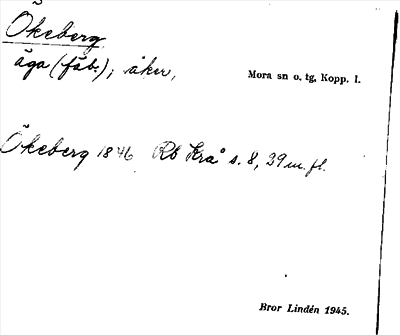 Ökeberg
äga (fäb.); åker,
Mora sn o. tg, Kopp. l.
Ökeberg 1846 Rå Krå s. 8, 29 m. fl.
Bror Lindén 1945.